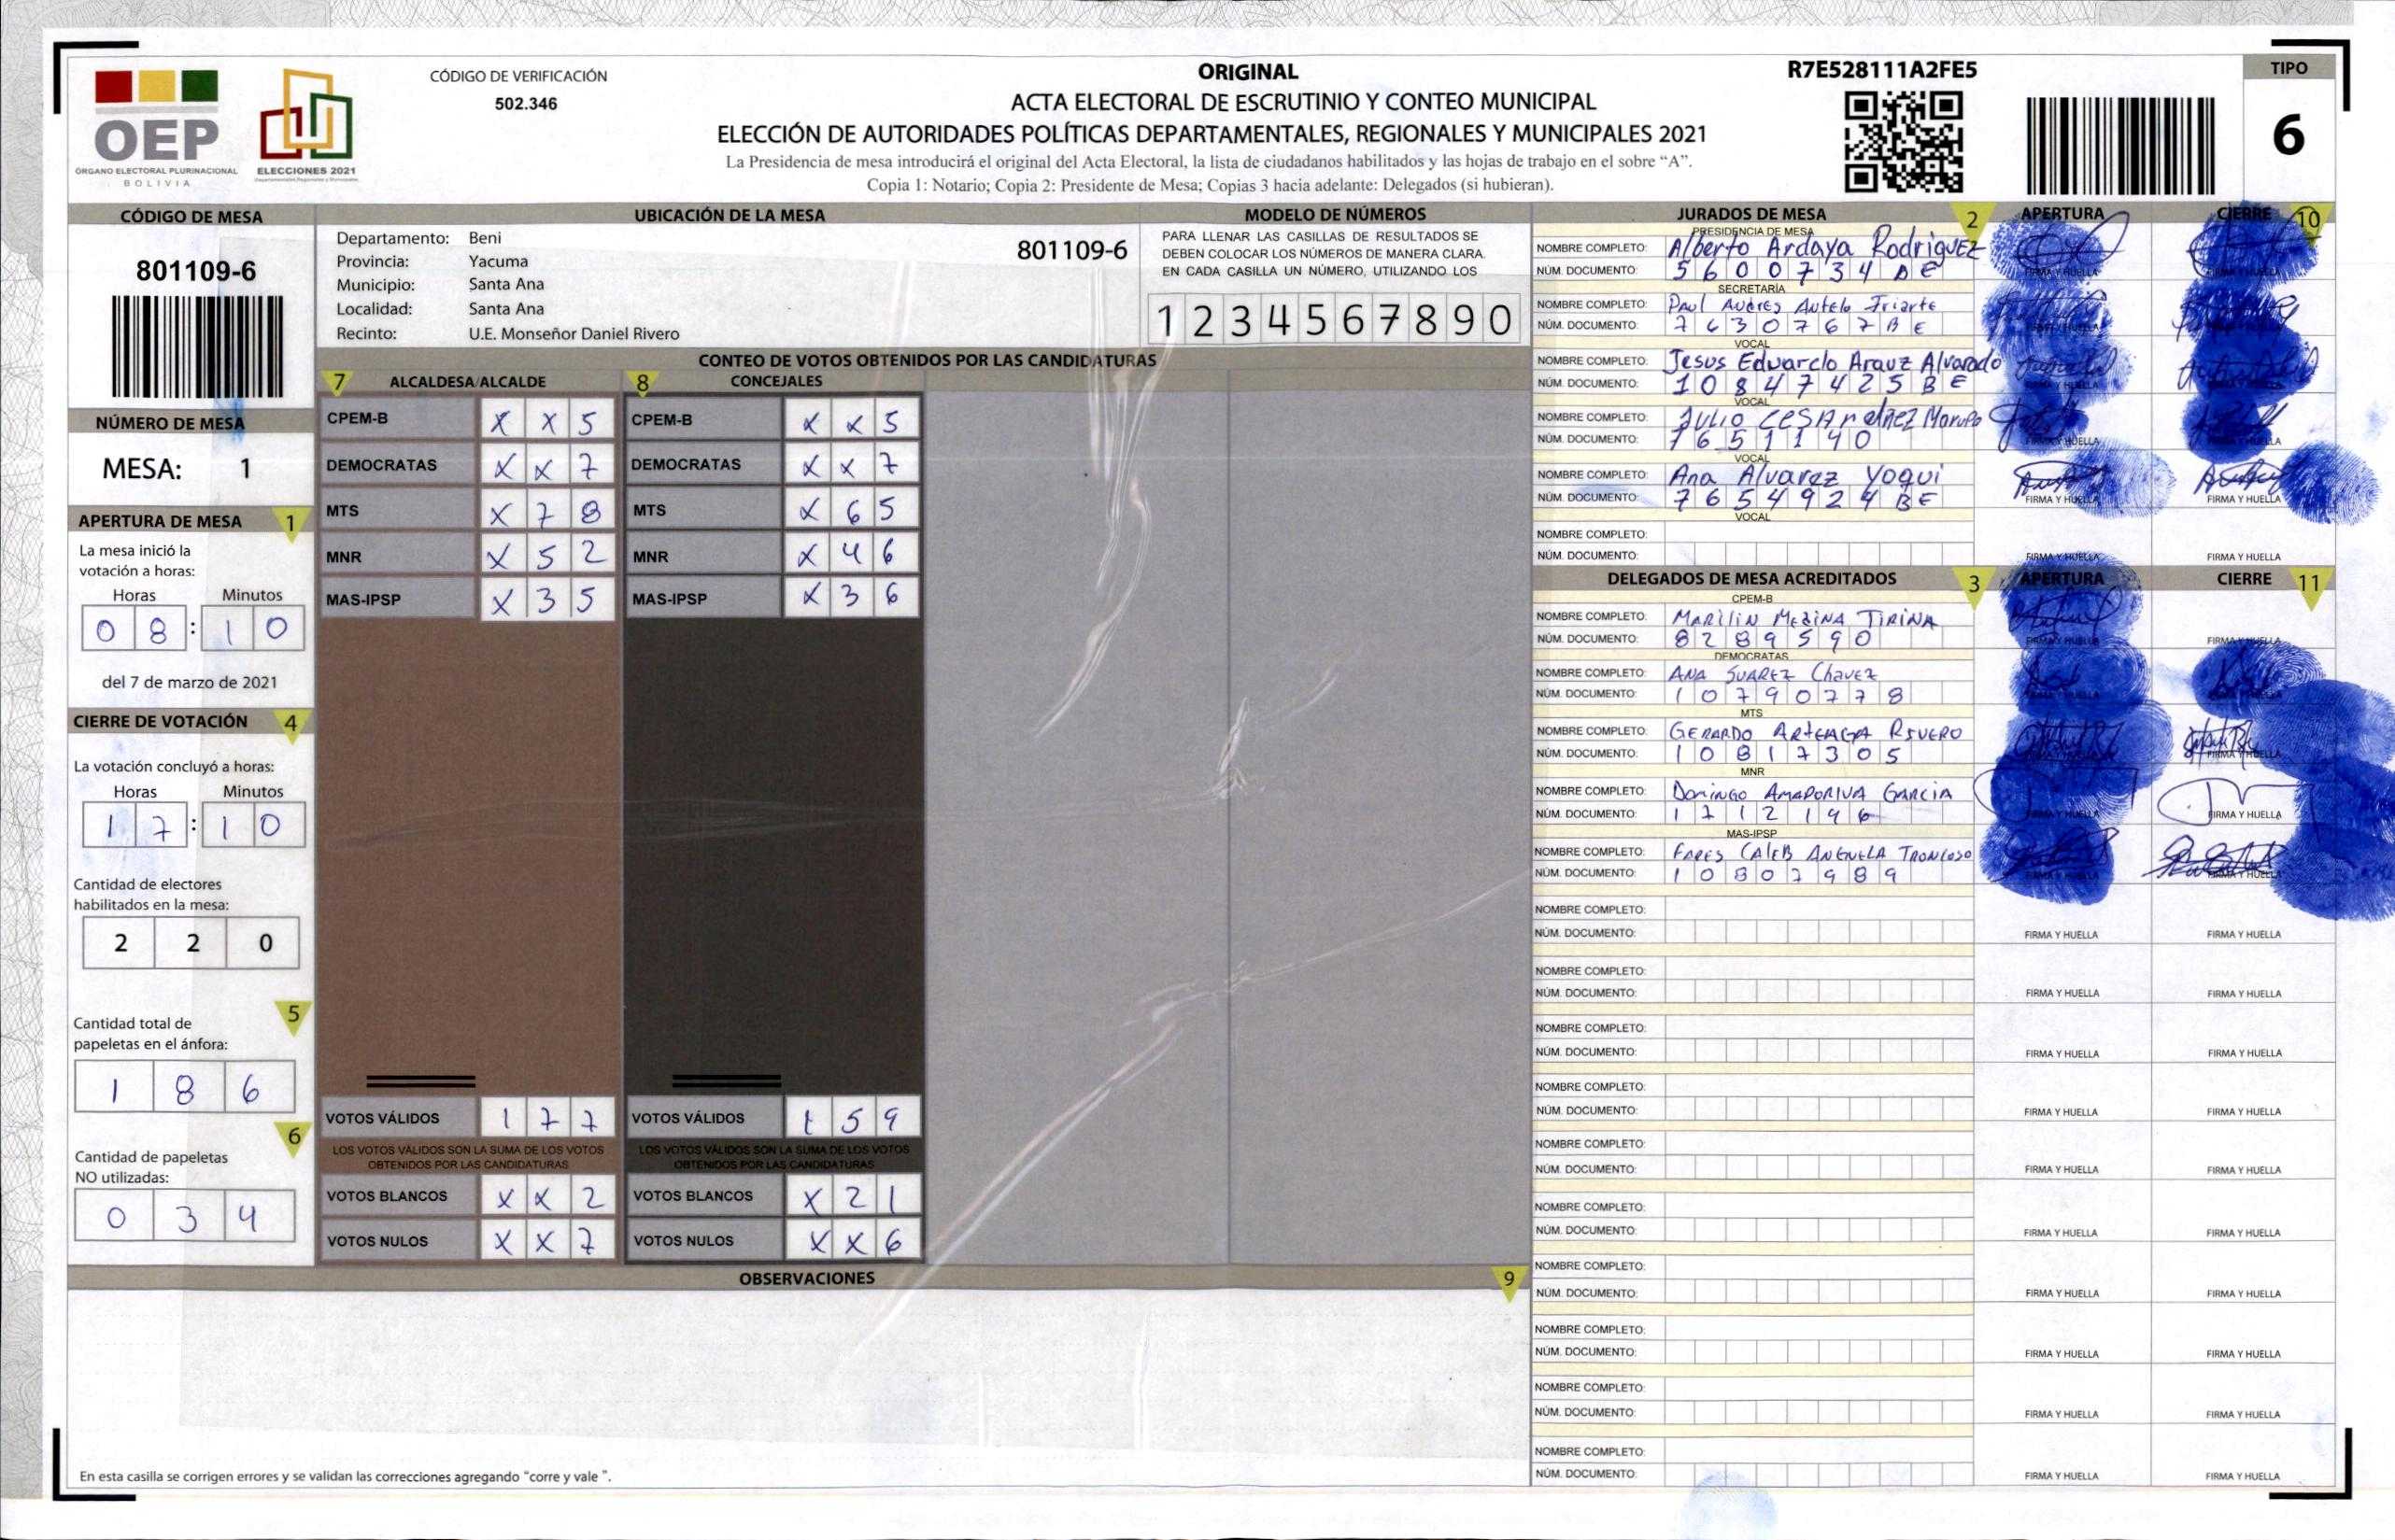 OEP
ÓRGANO ELECTORAL PLURINACIONAL
BOLIVIA
ELECCIONES 2021
CÓDIGO DE VERIFICACIÓN
502.346
ORIGINAL
ACTA ELECTORAL DE ESCRUTINIO Y CONTEO MUNICIPAL
ELECCIÓN DE AUTORIDADES POLÍTICAS DEPARTAMENTALES, REGIONALES Y MUNICIPALES 2021
La Presidencia de mesa introducirá el original del Acta Electoral, la lista de ciudadanos habilitados y las hojas de trabajo en el sobre “A”.
Copia 1: Notario; Copia 2: Presidente de Mesa; Copias 3 hacia adelante: Delegados (si hubieran).
R7E528111A2FE5
TIPO
6
CÓDIGO DE MESA
801109-6
NÚMERO DE MESA
MESA: 1
APERTURA DE MESA 1
La mesa inició la
votación a horas:
Horas Minutos
08:10
del 7 de marzo de 2021
CIERRE DE VOTACIÓN 4
La votación concluyó a horas:
Horas Minutos
17:10
Cantidad de electores
habilitados en la mesa:
2 2 0
5
Cantidad total de
papeletas en el ánfora:
1 8 6
6
Cantidad de papeletas
NO utilizadas:
0 3 4
UBICACIÓN DE LA MESA
Departamento: Beni
Provincia: Yacuma
Municipio: Santa Ana
Localidad: Santa Ana
Recinto: U.E. Monseñor Daniel Rivero
801109-6
MODELO DE NÚMEROS
PARA LLENAR LAS CASILLAS DE RESULTADOS SE
DEBEN COLOCAR LOS NÚMEROS DE MANERA CLARA.
EN CADA CASILLA UN NÚMERO, UTILIZANDO LOS
1 2 3 4 5 6 7 8 9 0
CONTEO DE VOTOS OBTENIDOS POR LAS CANDIDATURAS
7 ALCALDESA/ALCALDE
CPEM-B X X 5
DEMOCRATAS X X 7
MTS X 7 8
MNR X 5 2
MAS-IPSP X 3 5
VOTOS VÁLIDOS 1 7 7
LOS VOTOS VÁLIDOS SON LA SUMA DE LOS VOTOS
OBTENIDOS POR LAS CANDIDATURAS
VOTOS BLANCOS X X 2
VOTOS NULOS X X 7
8 CONCEJALES
CPEM-B X X 5
DEMOCRATAS X X 7
MTS X 6 5
MNR X 4 6
MAS-IPSP X 3 6
VOTOS VÁLIDOS 1 5 9
LOS VOTOS VÁLIDOS SON LA SUMA DE LOS VOTOS
OBTENIDOS POR LAS CANDIDATURAS
VOTOS BLANCOS X 2 1
VOTOS NULOS X X 6
OBSERVACIONES 9
En esta casilla se corrigen errores y se validan las correcciones agregando “corre y vale ”.
JURADOS DE MESA 2 APERTURA CIERRE 10
PRESIDENCIA DE MESA
NOMBRE COMPLETO: Alberto Ardaya Rodriguez
NÚM. DOCUMENTO: 5600734 BE
SECRETARÍA
NOMBRE COMPLETO: Paul Andres Antelo Iriarte
NÚM. DOCUMENTO: 7630767 BE
VOCAL
NOMBRE COMPLETO: Jesus Eduardo Arauz Alvarado
NÚM. DOCUMENTO: 10847425 BE
VOCAL
NOMBRE COMPLETO: Julio
NÚM. DOCUMENTO: 7651140
FIRMA Y HUELLA
VOCAL
NOMBRE COMPLETO: Ana Alvarez Yoqui
NÚM. DOCUMENTO: 7654924 BE
FIRMA Y HUELLA FIRMA Y HUELLA
VOCAL
NOMBRE COMPLETO:
NÚM. DOCUMENTO:
FIRMA Y HUELLA FIRMA Y HUELLA
DELEGADOS DE MESA ACREDITADOS 3 APERTURA CIERRE 11
CPEM-B
NOMBRE COMPLETO: Marilin Medina Tirina
NÚM. DOCUMENTO: 8289590
FIRMA Y HUELLA FIRMA Y HUELLA
DEMOCRATAS
NOMBRE COMPLETO: ANA SUAREZ Chavez
NÚM. DOCUMENTO: 10790778
MTS
NOMBRE COMPLETO: GERARDO ARTEAGA RIVERO
NÚM. DOCUMENTO: 10817305
FIRMA Y HUELLA
MNR
NOMBRE COMPLETO: Domingo GARCIA
NÚM. DOCUMENTO: 1712196
FIRMA Y HUELLA FIRMA Y HUELLA
MAS-IPSP
NOMBRE COMPLETO: CALEB TRONCOSO
NÚM. DOCUMENTO: 10807989
FIRMA Y HUELLA FIRMA Y HUELLA
NOMBRE COMPLETO:
NÚM. DOCUMENTO:
FIRMA Y HUELLA FIRMA Y HUELLA
NOMBRE COMPLETO:
NÚM. DOCUMENTO:
FIRMA Y HUELLA FIRMA Y HUELLA
NOMBRE COMPLETO:
NÚM. DOCUMENTO:
FIRMA Y HUELLA FIRMA Y HUELLA
NOMBRE COMPLETO:
NÚM. DOCUMENTO:
FIRMA Y HUELLA FIRMA Y HUELLA
NOMBRE COMPLETO:
NÚM. DOCUMENTO:
FIRMA Y HUELLA FIRMA Y HUELLA
NOMBRE COMPLETO:
NÚM. DOCUMENTO:
FIRMA Y HUELLA FIRMA Y HUELLA
NOMBRE COMPLETO:
NÚM. DOCUMENTO:
FIRMA Y HUELLA FIRMA Y HUELLA
NOMBRE COMPLETO:
NÚM. DOCUMENTO:
FIRMA Y HUELLA FIRMA Y HUELLA
NOMBRE COMPLETO:
NÚM. DOCUMENTO:
FIRMA Y HUELLA FIRMA Y HUELLA
NOMBRE COMPLETO:
NÚM. DOCUMENTO:
FIRMA Y HUELLA FIRMA Y HUELLA